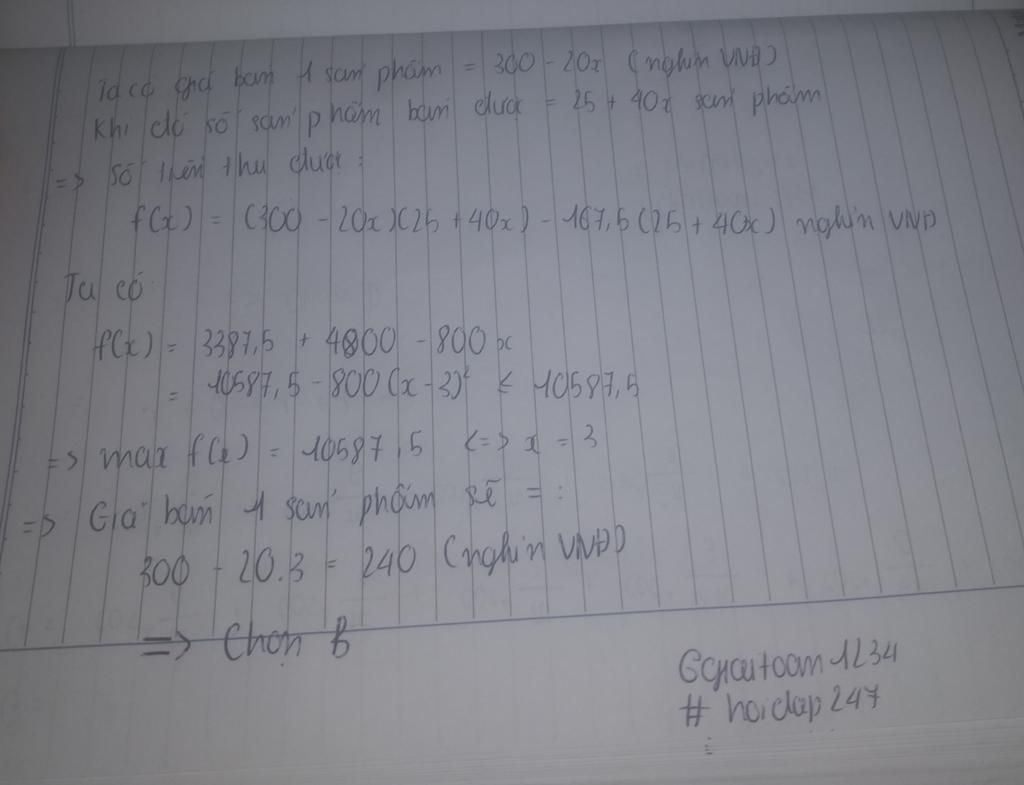 Ta có giá bán 1 sản phẩm = 300 - 20x (nghìn VNĐ)
Khi đó số sản phẩm bán được = 25 + 40x sản phẩm
=> số tiền thu được :
f(x) = (300 - 20x)(25 + 40x) - 167,5(25 + 40x) nghìn VNĐ
Ta có
f(x) = 3387,5 + 4800 - 800x
= 10587,5 - 800(x - 3)² ≤ 10587,5
=> max f(x) = 10587,5 <=> x = 3
=> Giá bán 1 sản phẩm sẽ = :
300 - 20.3 = 240 (nghìn VNĐ)
=> Chọn B
# hoidap247